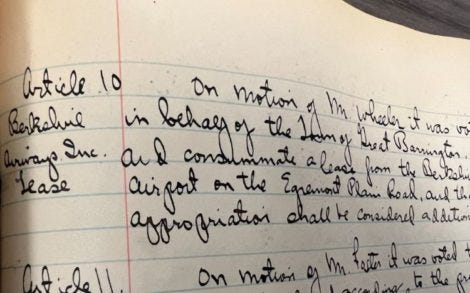 Article 10 On motion of Mr. Wheeler it was vo
Berkshire in behalf of the Town of Great Barrington
Airways Inc. and consummate a lease from the Berkshi
Lease airport on the Egremont Plain Road, and th
appropriation shall be considered addition
Article 11. On motion of Mr. Foster it was voted t
according to the